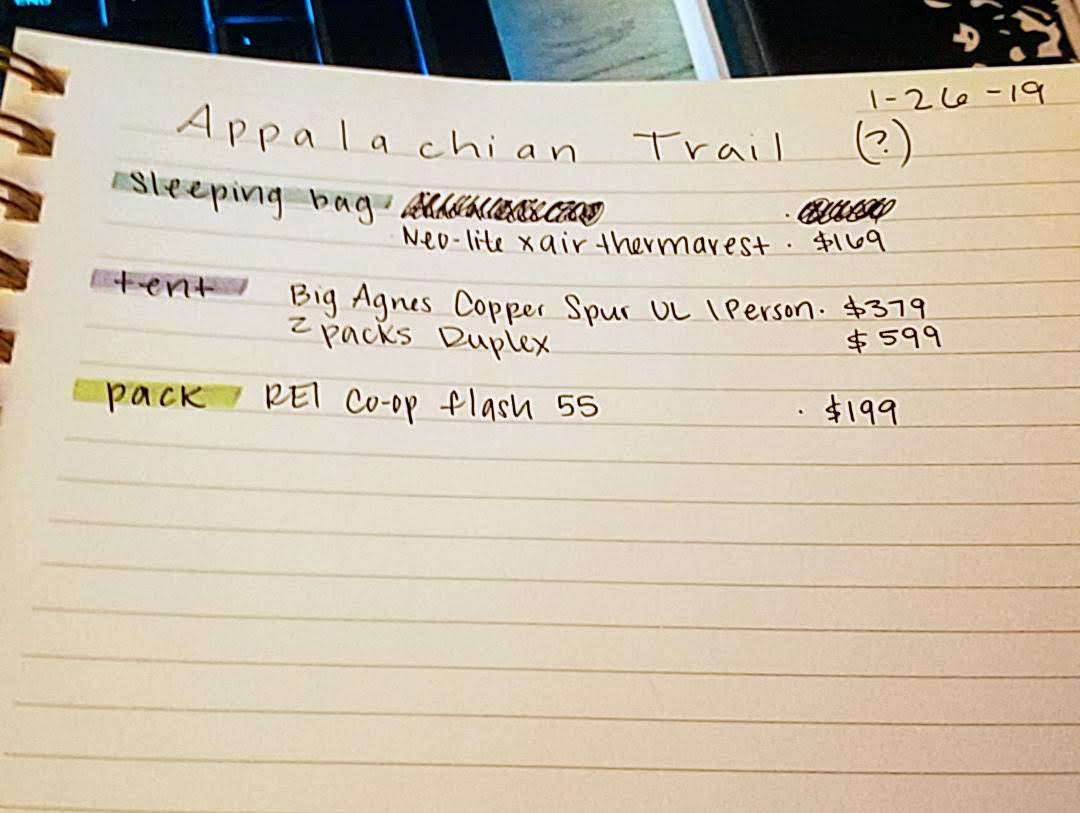 END
1-26-19
Appalachian Trail (?)
sleeping bag
Neo-lite xair thermarest . $169
tent Big Agnes Copper Spur UL 1 Person . $379
z packs Duplex $599
pack REI Co-op flash 55 . $199